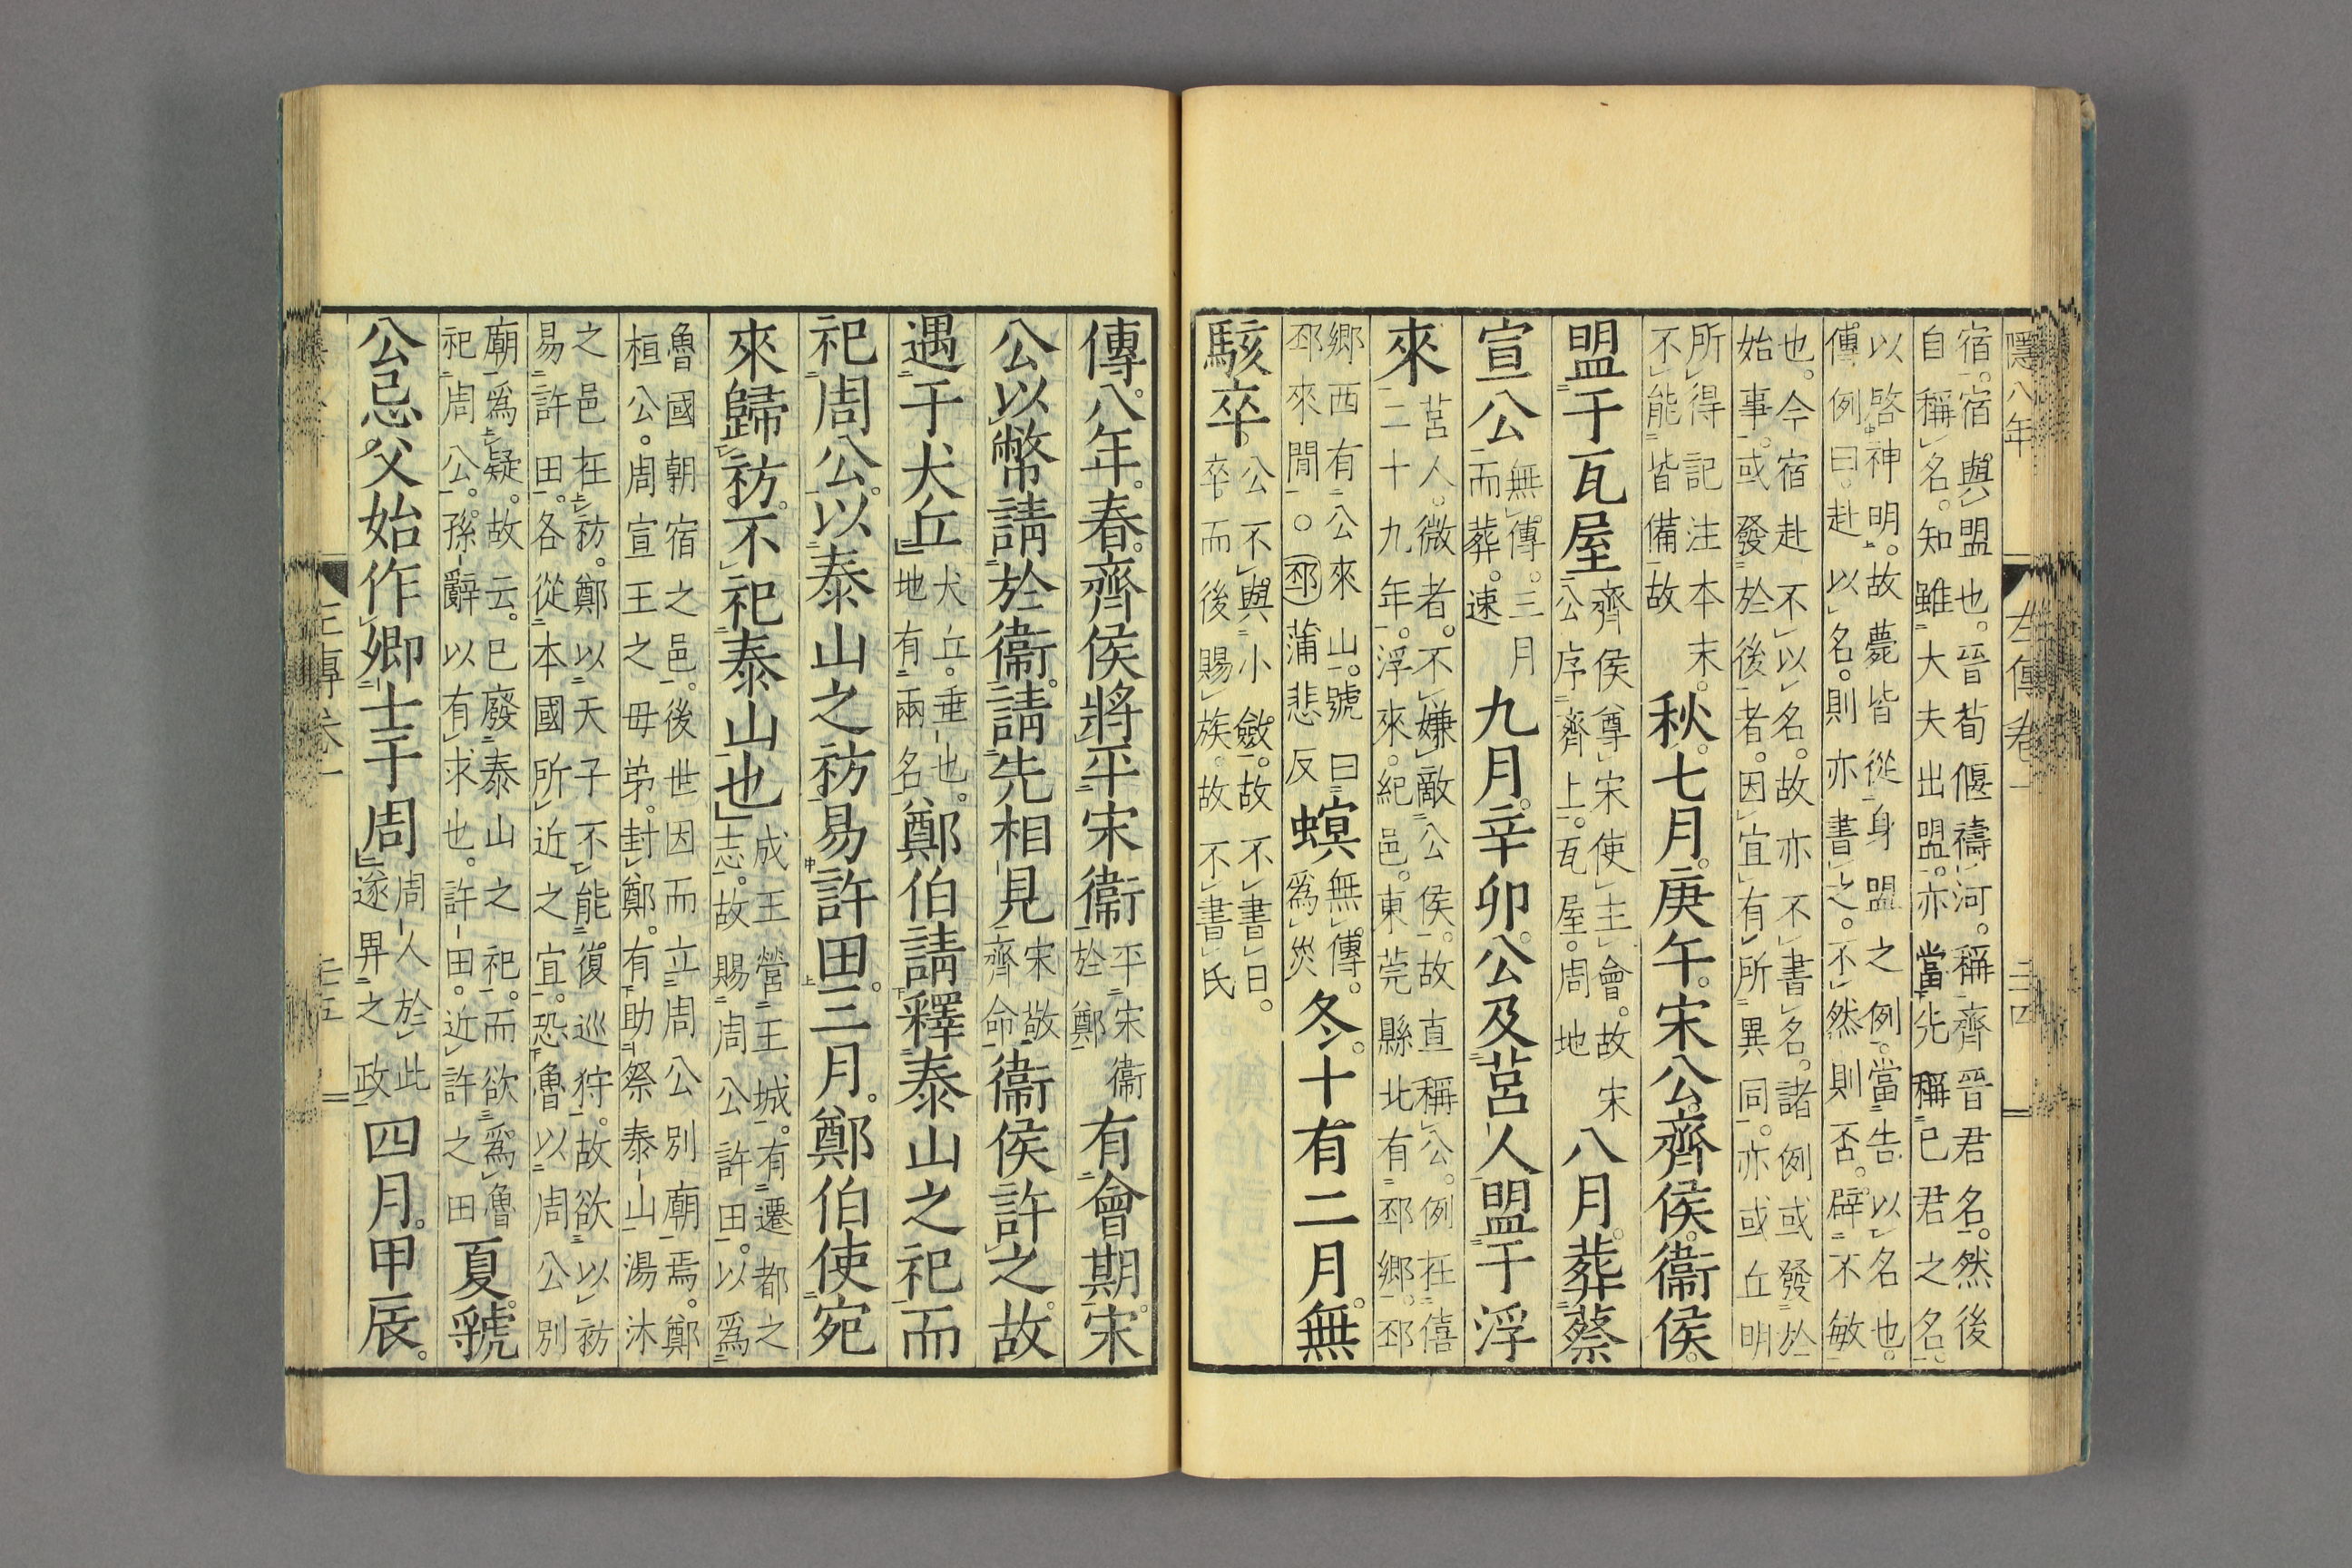 隱八年 左傳卷一 二四
宿。宿與盟也。晉荀偃禱河。稱齊晉君名。然後
自稱名。知雖大夫出盟。亦當先稱己君之名。
以啓神明。故薨皆從身盟之例。當告以名也。
傳例曰。赴以名。則亦書之。不然則否。辟不敏
也。今宿赴不以名。故亦不書名。諸例或發於
始事。或發於後者。因宜有所異同。亦或丘明
所得記注本末。不能皆備故秋。七月。庚午。宋公。齊侯。衞侯。
盟于瓦屋齊侯尊宋使主會。故宋公序齊上。瓦屋。周地八月。葬蔡
宣公無傳。三月而葬。速九月。辛卯。公及莒人盟于浮
來莒人。微者。不嫌敵公侯。故直稱公。例在僖二十九年。浮來。紀邑。東莞縣北有邳鄉。邳
鄉西有公來山。號曰邳來閒。○邳蒲悲反螟無傳。爲災冬。十有二月。無
駭卒。公不與小斂。故不書日。卒而後賜族。故不書氏
傳。八年。春。齊侯將平宋衞平宋衞於鄭有會期。宋
公以幣請於衞。請先相見宋敬齊命衞侯許之。故
遇于犬丘犬丘。垂也。地有兩名鄭伯請釋泰山之祀而
祀周公。以泰山之祊易許田。三月。鄭伯使宛
來歸祊。不祀泰山也成王營王城。有遷都之志。故賜周公許田。以爲
魯國朝宿之邑。後世因而立周公別廟焉。鄭
桓公。周宣王之母弟。封鄭。有助祭泰山湯沐
之邑在祊。鄭以天子不能復巡狩。故欲以祊
易許田。各從本國所近之宜。恐魯以周公別
廟爲疑。故云。已廢泰山之祀。而欲爲魯祀周公。孫辭以有求也。許田。近許之田夏。虢
公忌父始作卿士于周周人於此遂畀之政四月。甲辰。
左傳卷一 二五